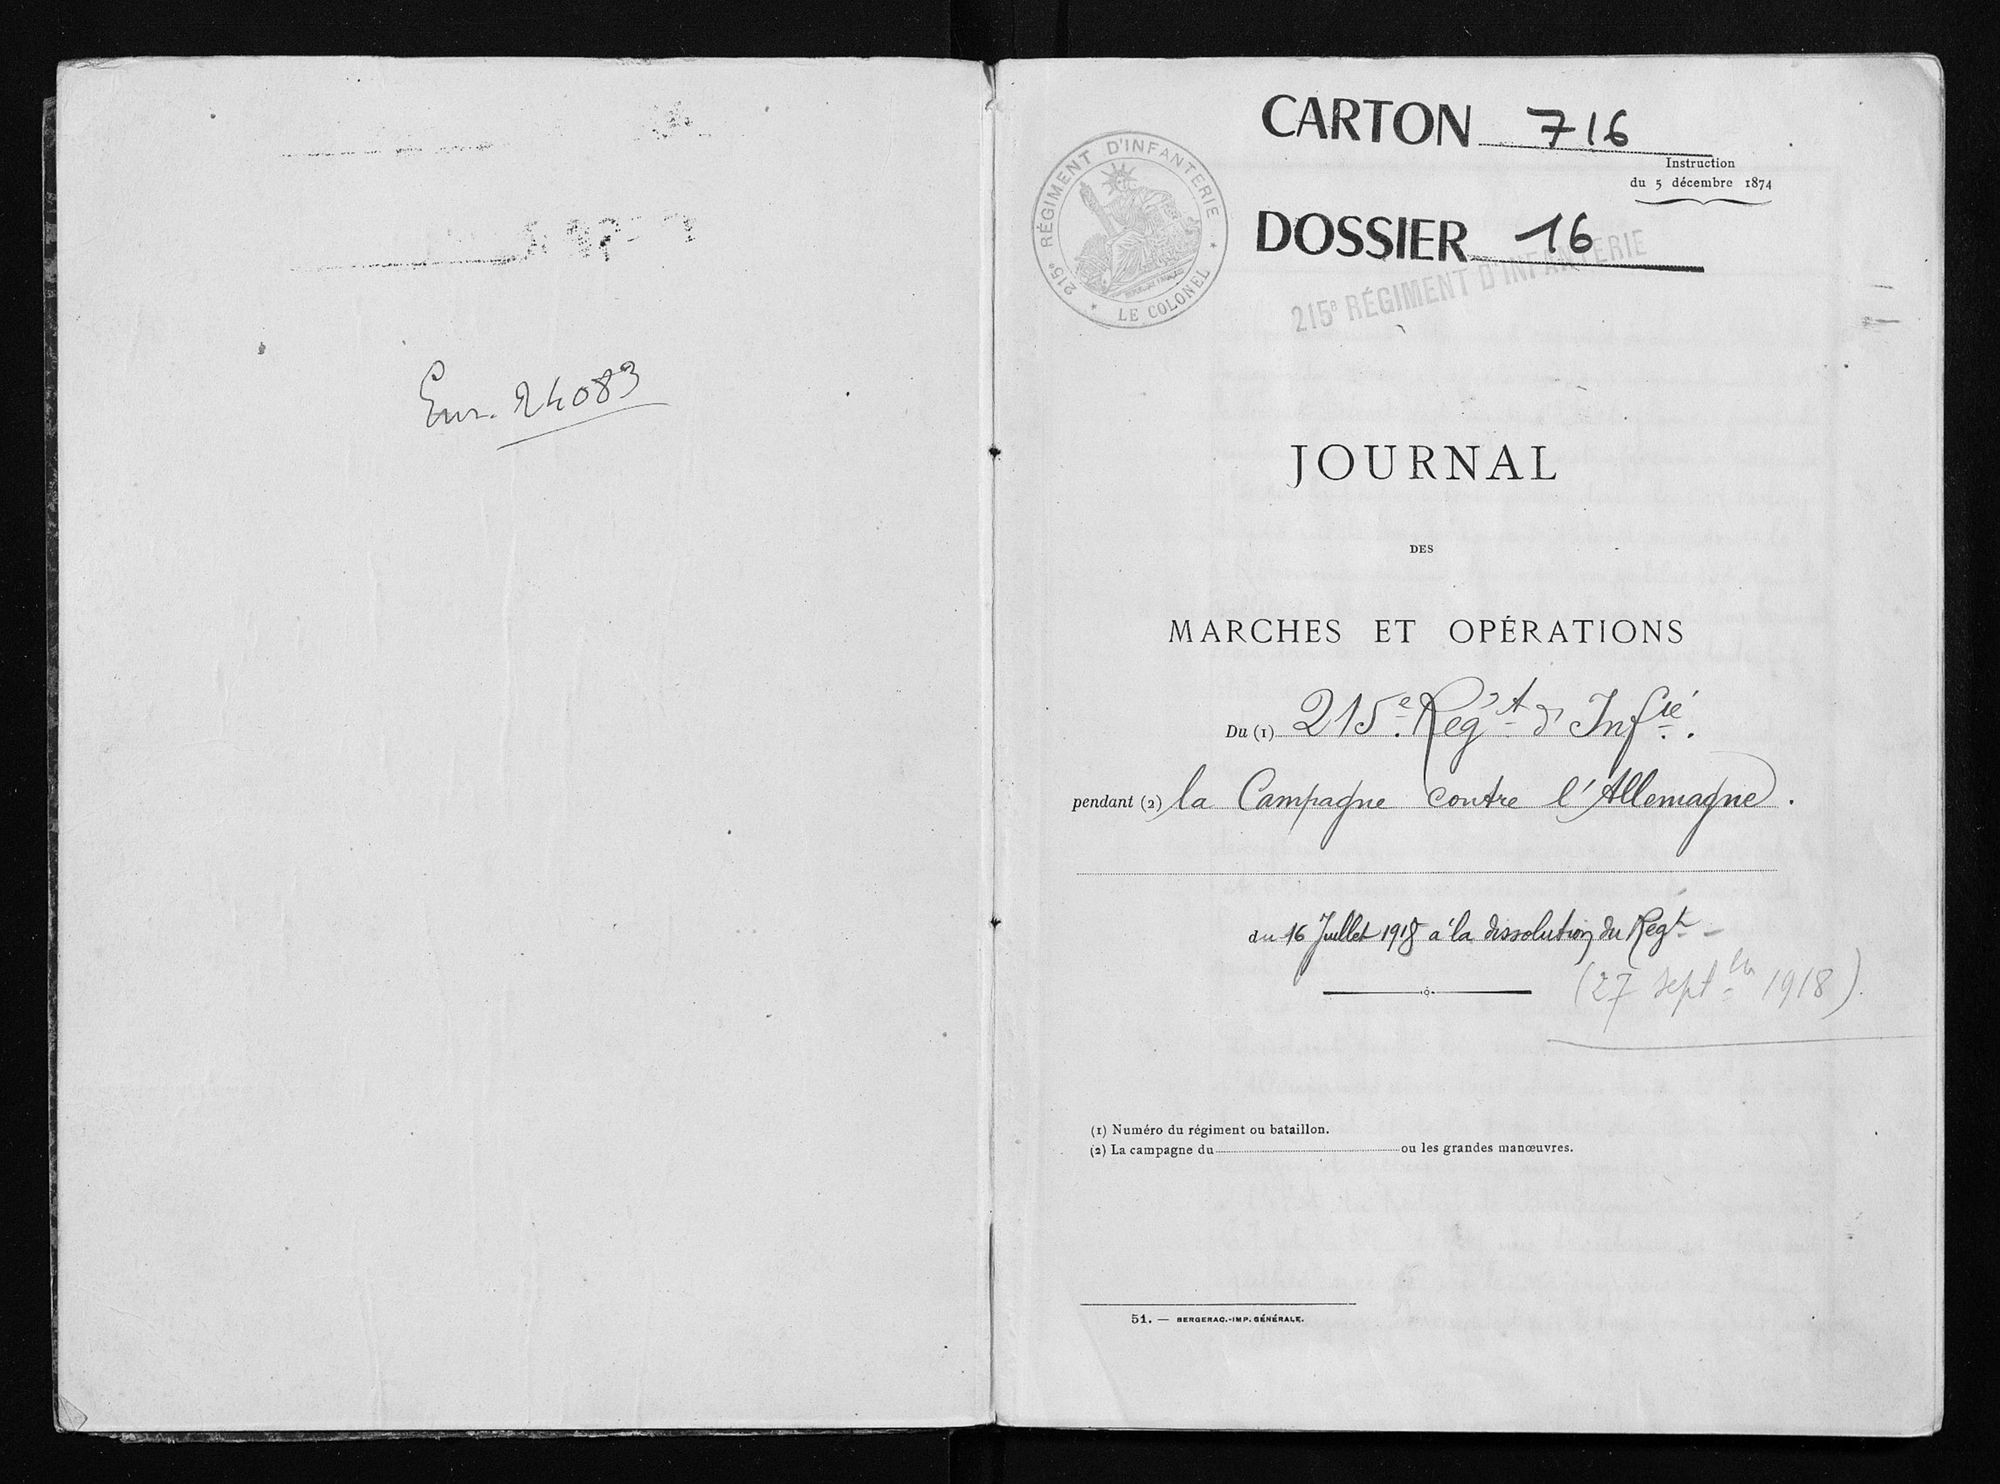 Enr. 24083
CARTON 716
Instruction
du 5 décembre 1874
DOSSIER 16
215e RÉGIMENT D'INFANTERIE
LE COLONEL
215e RÉGIMENT D'INFANTERIE
JOURNAL
DES
MARCHES ET OPÉRATIONS
Du (1) 215e Reg't d'Infie.
pendant (2) la Campagne contre l'Allemagne.
du 16 Juillet 1918 à la dissolution du Regt
(27 septbre 1918)
(1) Numéro du régiment ou bataillon.
(2) La campagne du ou les grandes manœuvres.
51. — BERGERAC.-IMP. GÉNÉRALE.